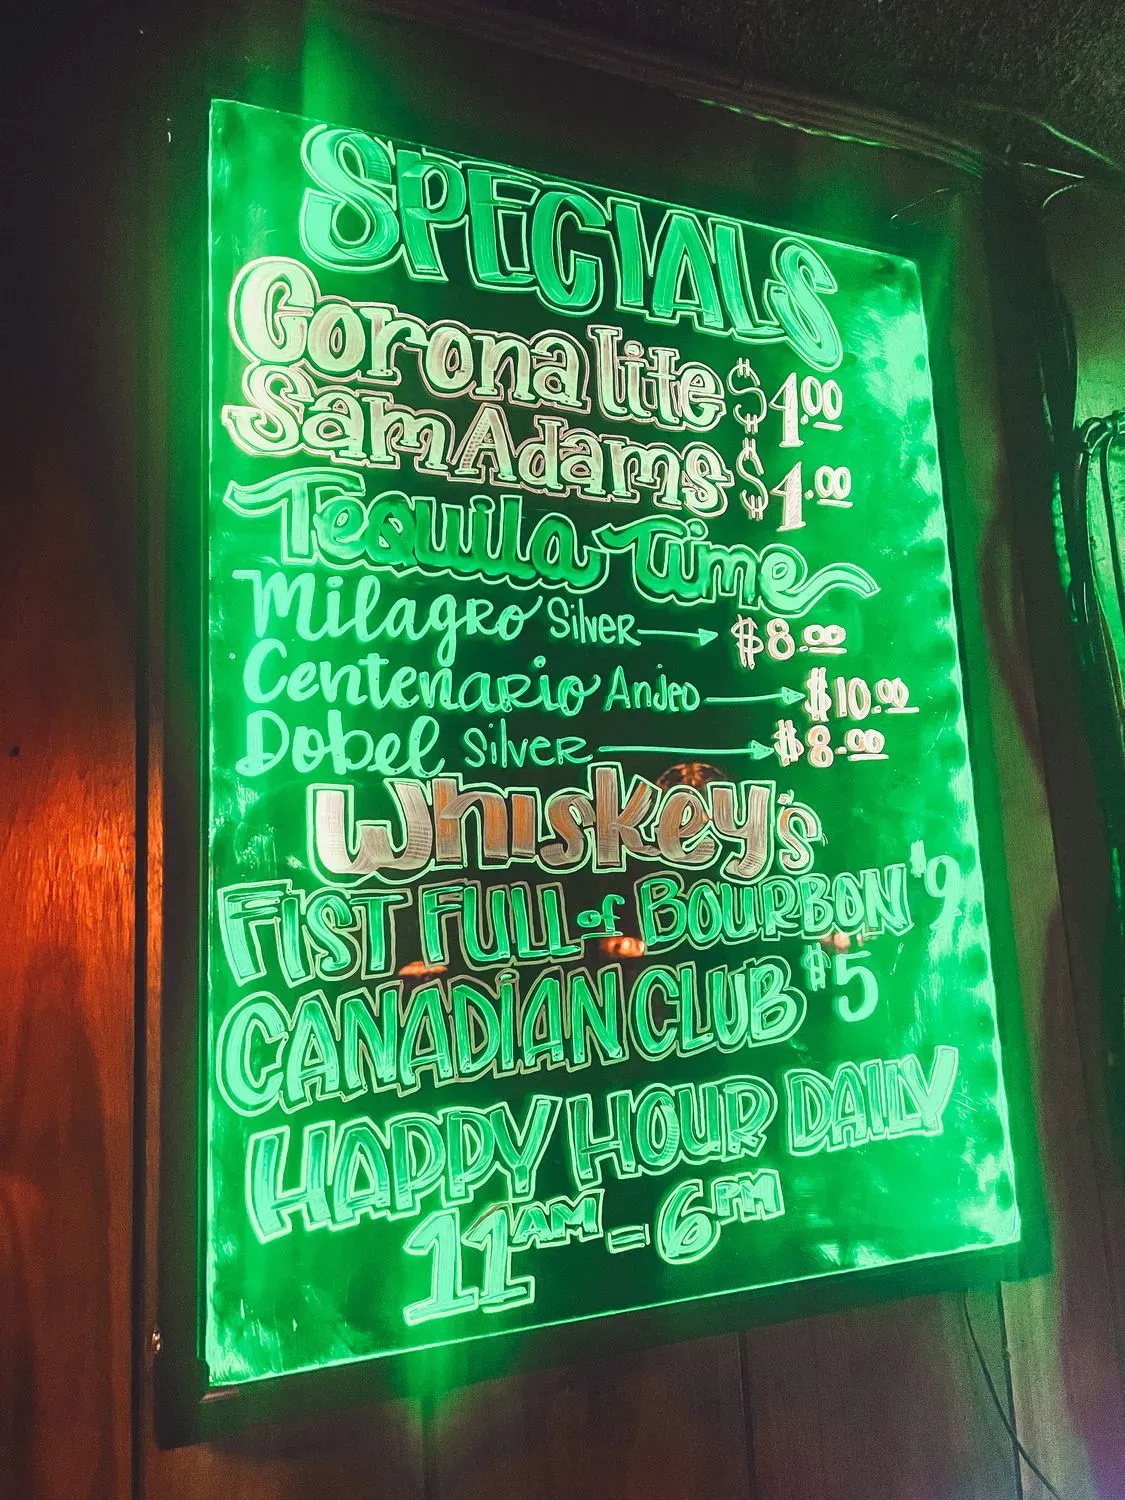 SPECIALS
Corona lite $1.00
Sam Adams $1.00
Tequila Time
Milagro Silver $8.00
Centenario Anjeo $10.00
Dobel Silver $8.00
Whiskey's
FIST FULL of BOURBON $9
CANADIAN CLUB $5
HAPPY HOUR DAILY
11AM = 6PM